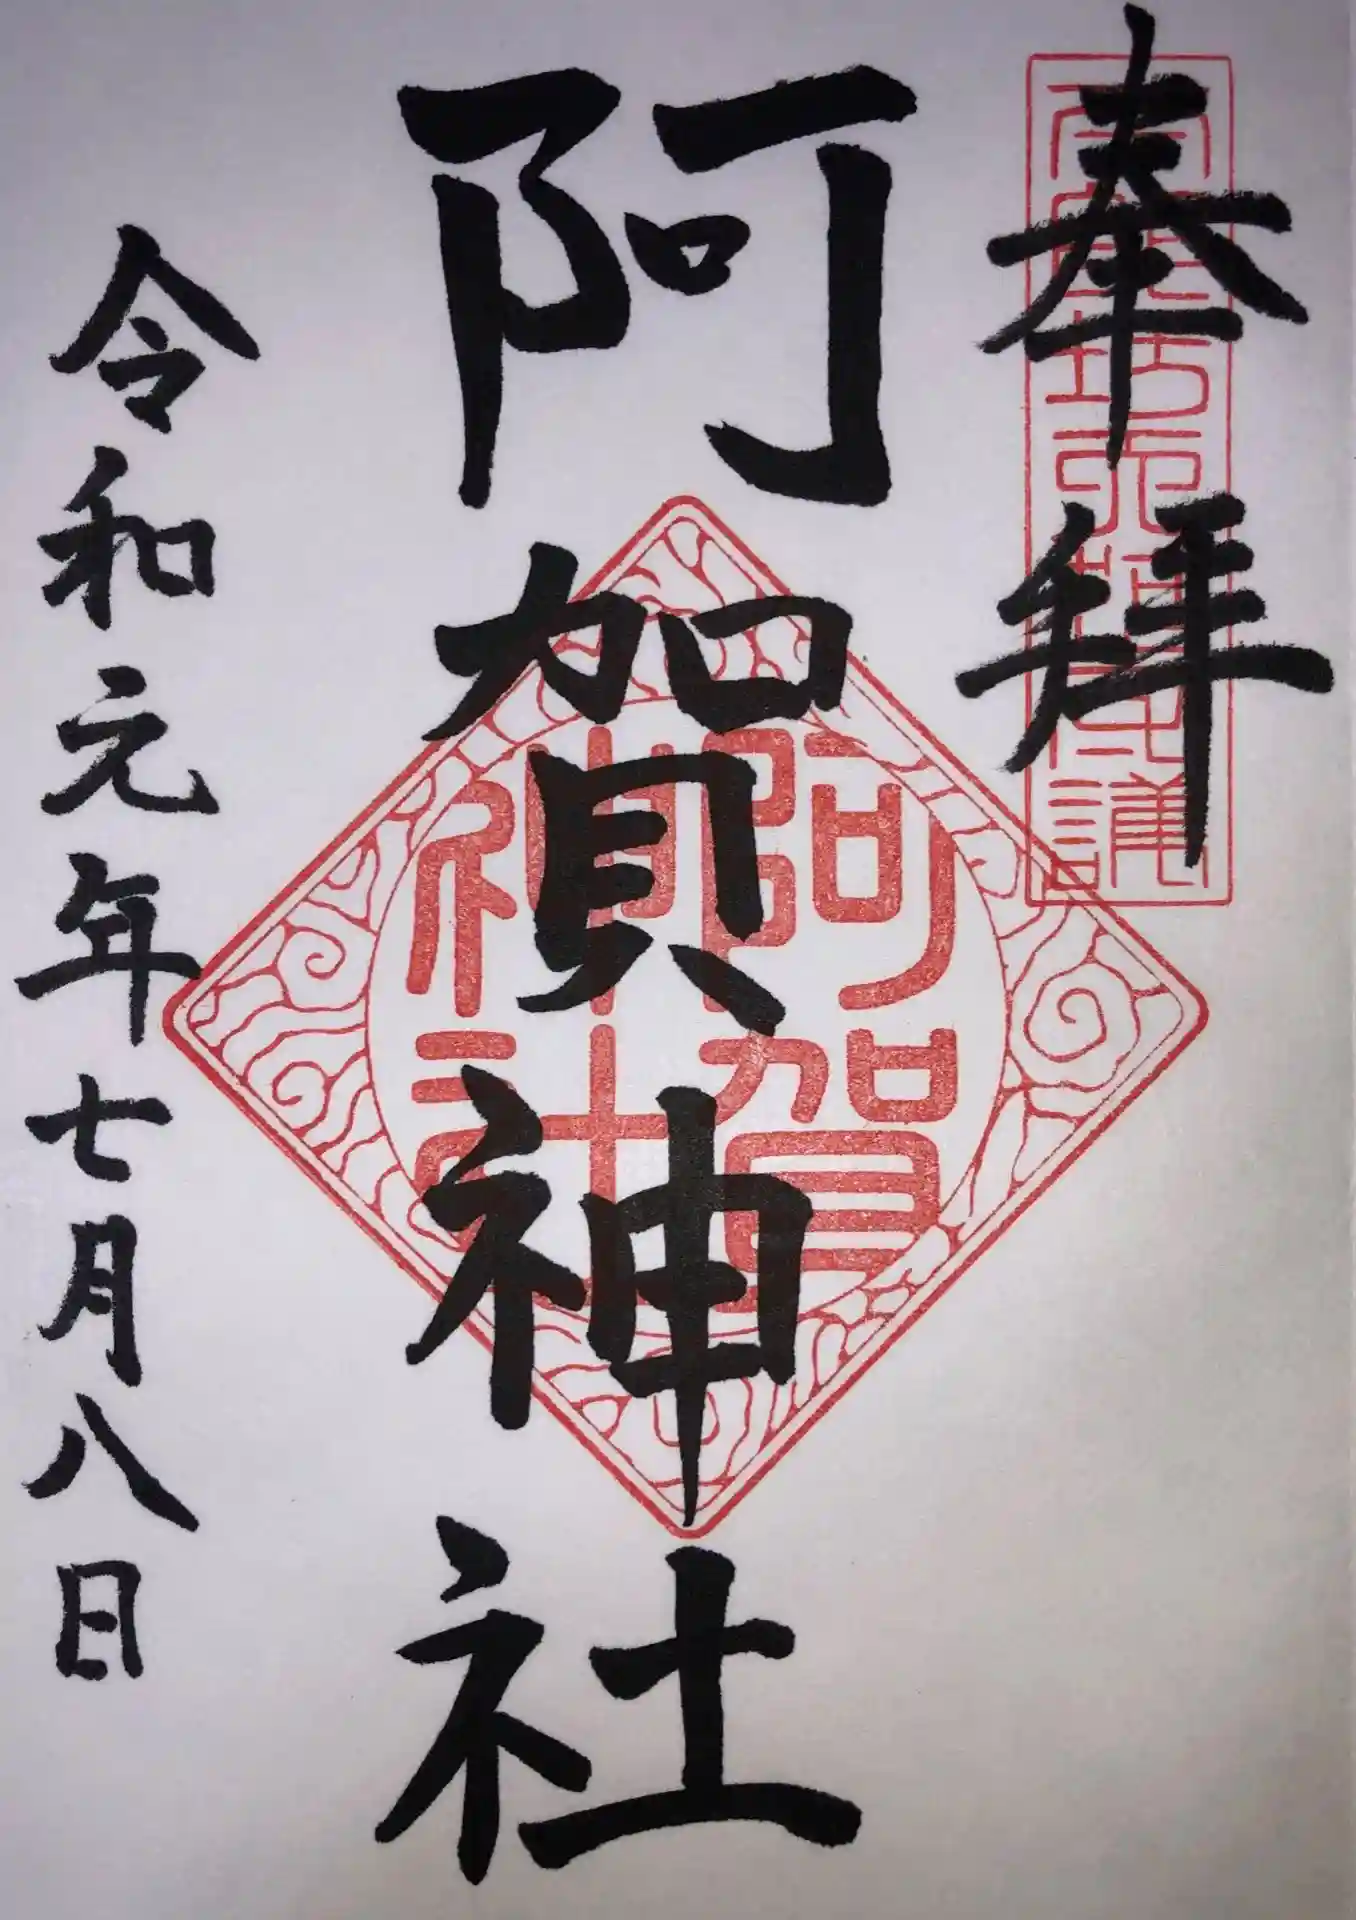 奉拜
阿賀神社
令和元年七月八日
阿賀
神社